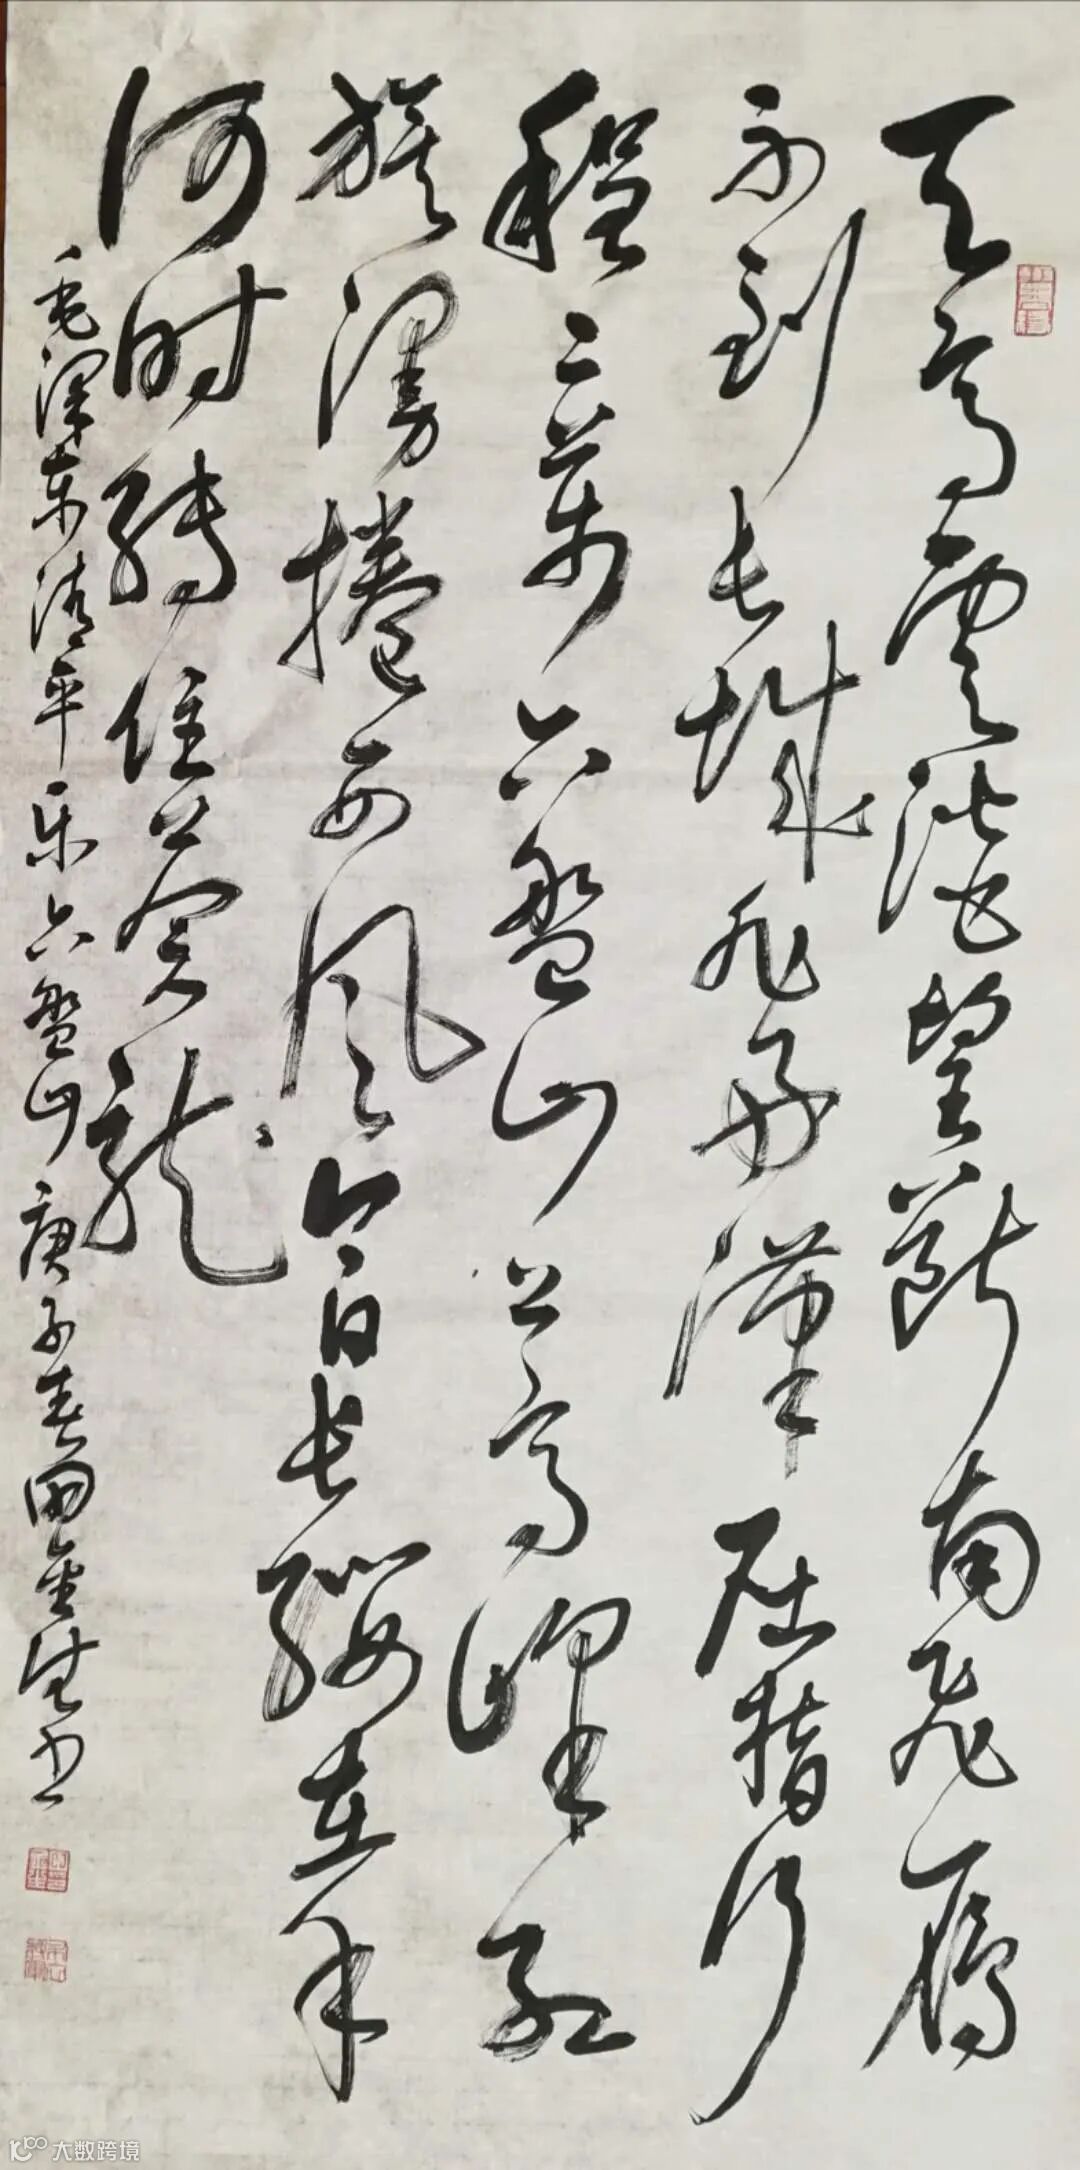 天高雲淡望斷南飛雁
不到长城非好漢屈指行
程二萬六盘山上高峰红
旗漫捲西风今日长缨在手
何时缚住苍龙
毛泽东清平乐六盘山庚子春书
大数跨境